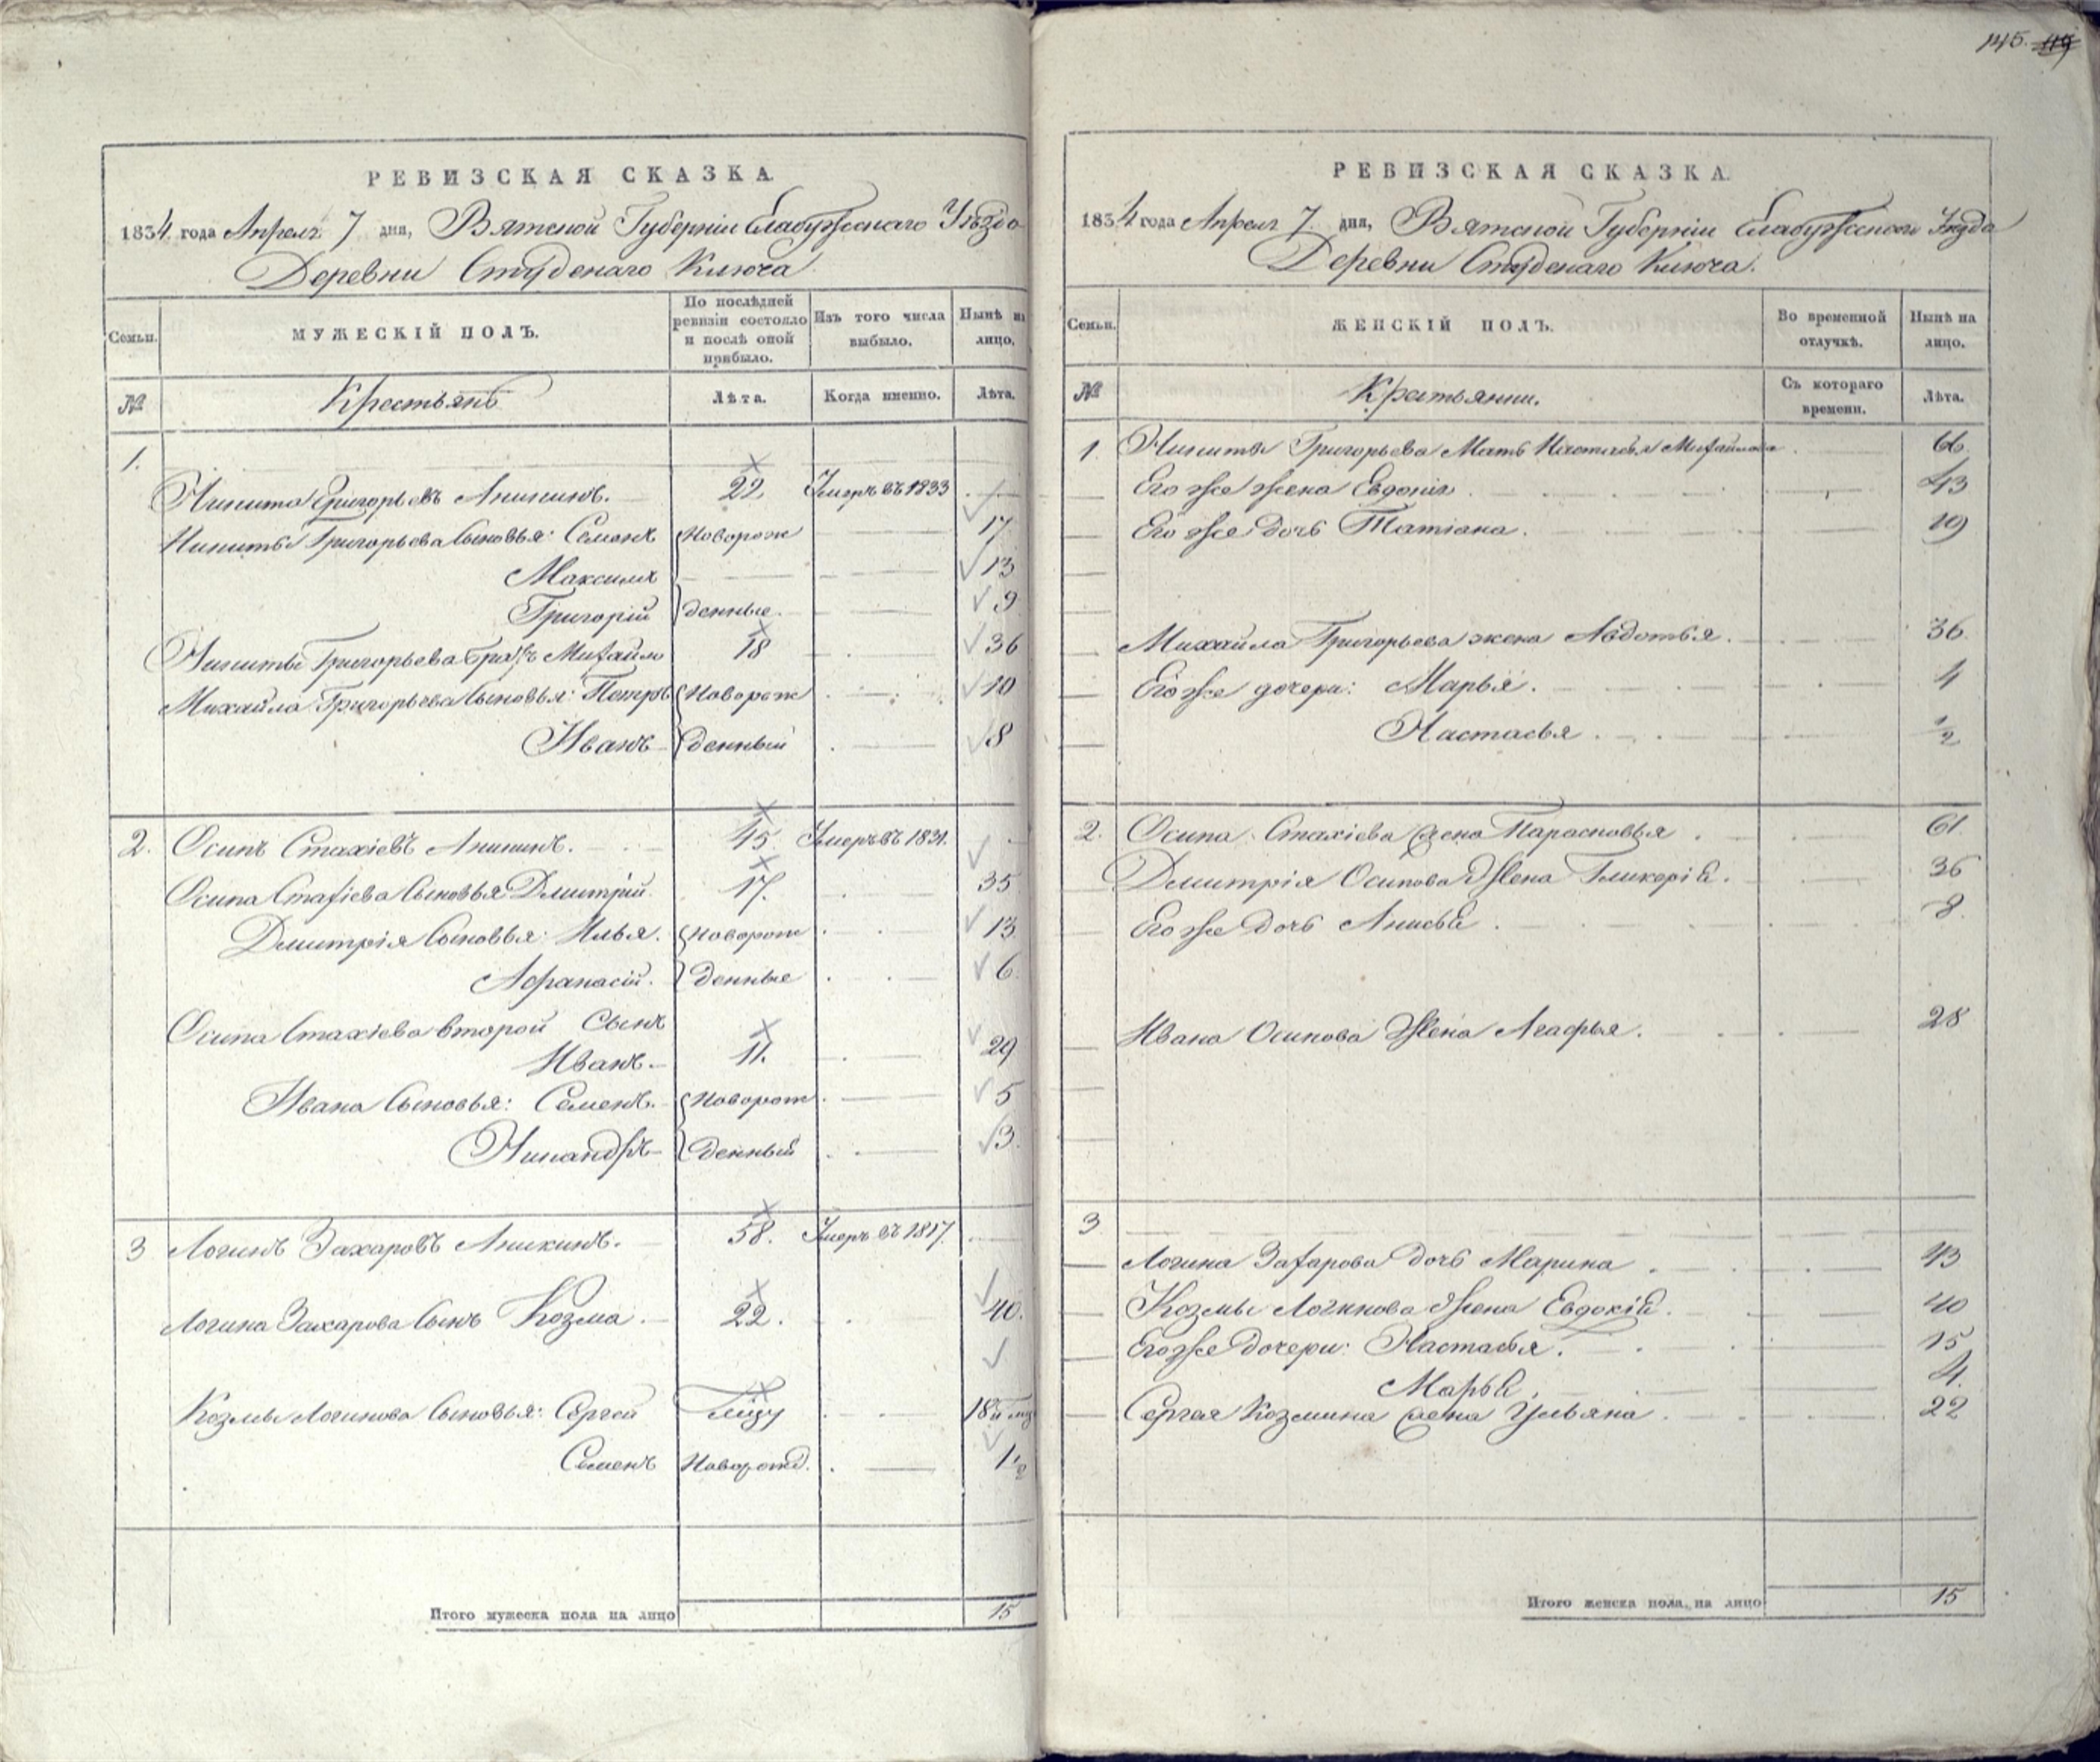 145.
РЕВИЗСКАЯ СКАЗКА.
1834 года Апреля 7 дня, Вятской Губерніи Елабужскаго Уѣзда
Деревни Студенаго Ключа.
Семьи. МУЖЕСКІЙ ПОЛЪ. По послѣдней ревизіи состояло и послѣ оной прибыло. Изъ того числа выбыло. Нынѣ на лицо.
№ Крестьянъ Лѣта. Когда именно. Лѣта.
1.
Никита Григорьевъ Аникинъ. 22 Умеръ въ 1833
Никиты Григорьева Сыновья: Семенъ Новорож 17
Максимъ 13
Григорій денные 9
Никиты Григорьева братъ Михайло 18 36
Михайла Григорьева Сыновья: Петръ Новорож 10
Иванъ денный 8
2. Осипъ Стахіевъ Аникинъ. 45. Умеръ въ 1831.
Осипа Стахіева Сыновья Дмитрій 17. 35
Дмитрія Сыновья: Илья. Новорож 13
Афанасій. денные 6.
Осипа Стахіева второй Сынъ
Иванъ 11. 29
Ивана Сыновья: Семенъ. Новорож 5
Никандръ денный 3.
3 Логинъ Захаровъ Аникинъ. 58. Умеръ въ 1817.
Логина Захарова Сынъ Козма. 22. 40.
Козмы Логинова Сыновья: Сергей 18
Семенъ Новорожд. 1/2
Итого мужеска пола на лицо 15
РЕВИЗСКАЯ СКАЗКА.
1834 года Апреля 7. дня, Вятской Губерніи Елабужскаго Уѣзда
Деревни Студенаго Ключа.
Семьи. ЖЕНСКІЙ ПОЛЪ. Во временной отлучкѣ. Нынѣ на лицо.
№ Крестьянки. Съ котораго времени. Лѣта.
1 Никиты Григорьева Мать Настасья Михайлова 66
Его же жена Евдокія 43
Его же дочь Татіана. 19
Михайла Григорьева жена Авдотья. 36.
Его же дочери: Марья. 4
Настасья 1/2
2. Осипа Стахіева жена Парасковья 61
Дмитрія Осипова Жена Гликерія. 36
Его же дочь Анисья 8.
Ивана Осипова Жена Агафья. 28
3
Логина Захарова дочь Марина 43
Козмы Логинова Жена Евдокія. 40
Его же дочери: Настасья. 15
Марья. 4.
Сергея Козмина жена Ульяна 22
Итого женска пола, на лицо 15